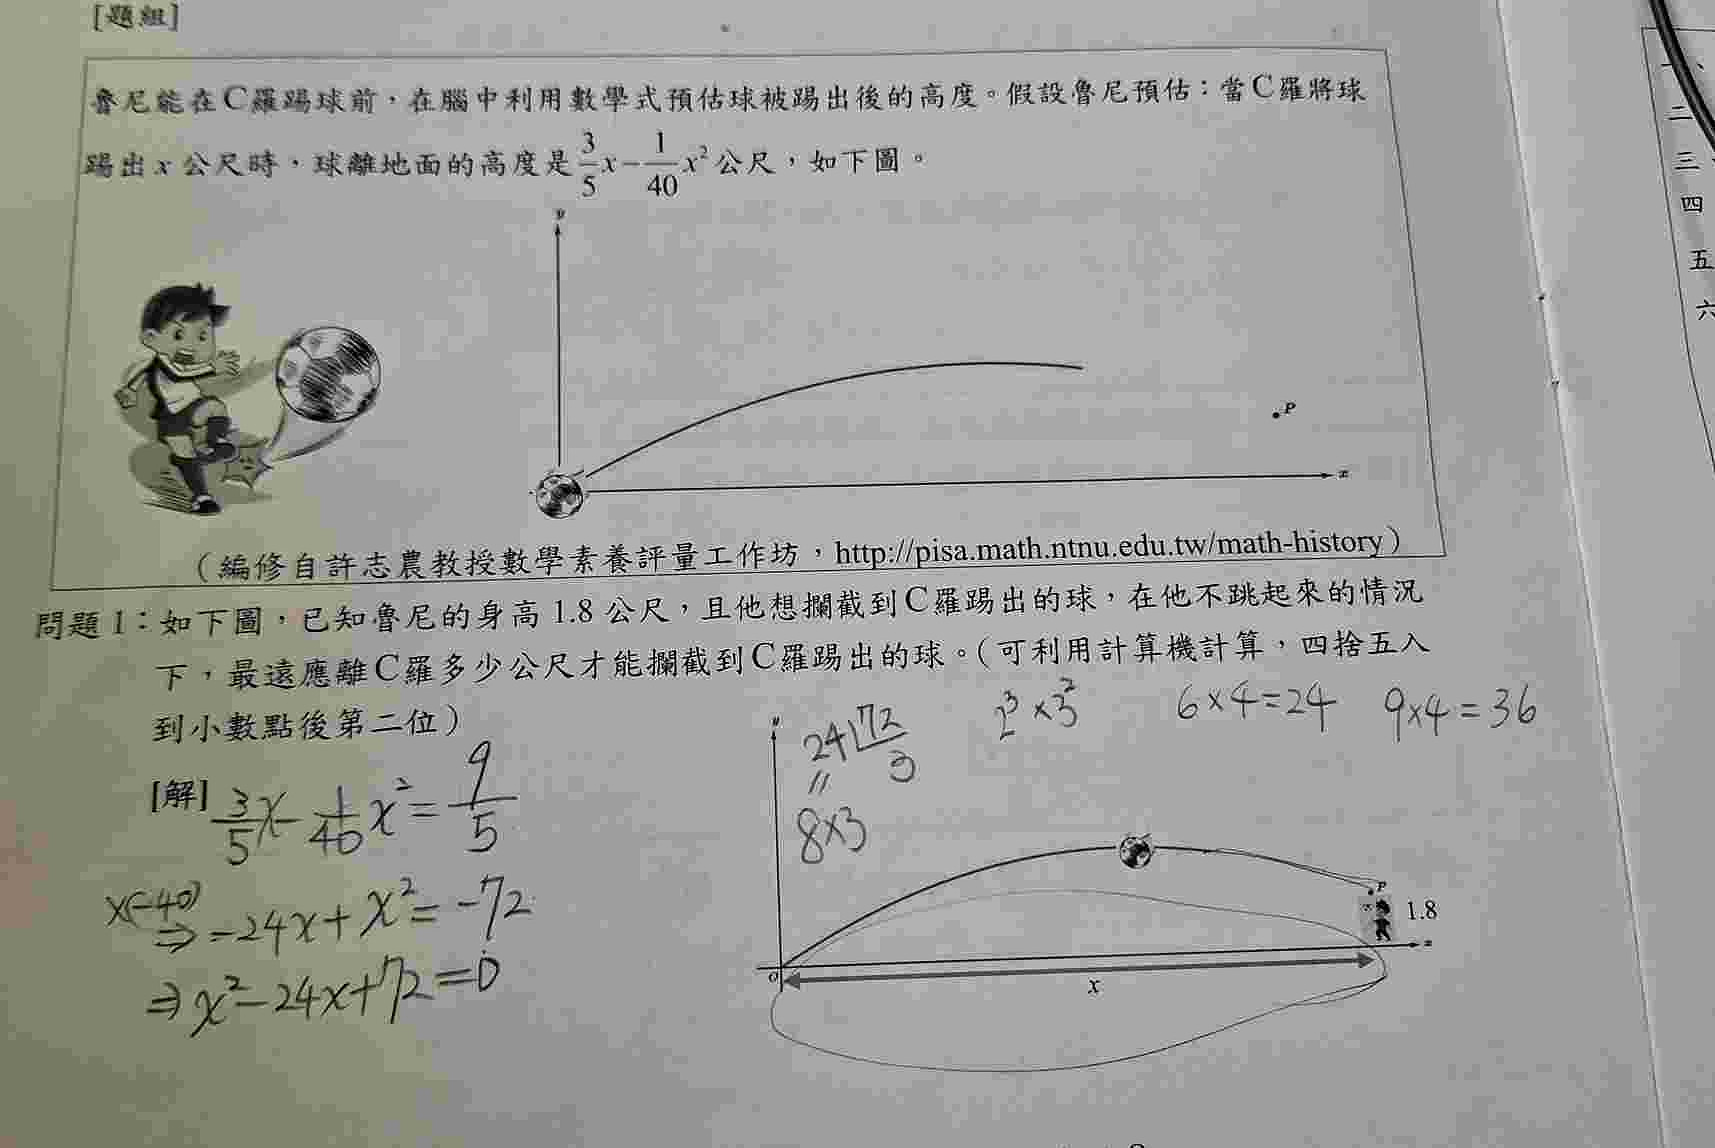 [題組]
魯尼能在C羅踢球前，在腦中利用數學式預估球被踢出後的高度。假設魯尼預估：當C羅將球
踢出 x 公尺時，球離地面的高度是 3/5 x − 1/40 x² 公尺，如下圖。
y
P
x
（編修自許志農教授數學素養評量工作坊，http://pisa.math.ntnu.edu.tw/math-history）
問題1：如下圖，已知魯尼的身高 1.8 公尺，且他想攔截到C羅踢出的球，在他不跳起來的情況
下，最遠應離C羅多少公尺才能攔截到C羅踢出的球。（可利用計算機計算，四捨五入
到小數點後第二位）
[解] 3/5 x − 1/40 x² = 9/5
x(−40)
⇒ −24x + x² = −72
⇒ x² − 24x + 72 = 0
24 72
3
=
8×3
2³×3²
6×4=24
9×4=36
y
P
1.8
x
O
x
、
二
三
四
五
六